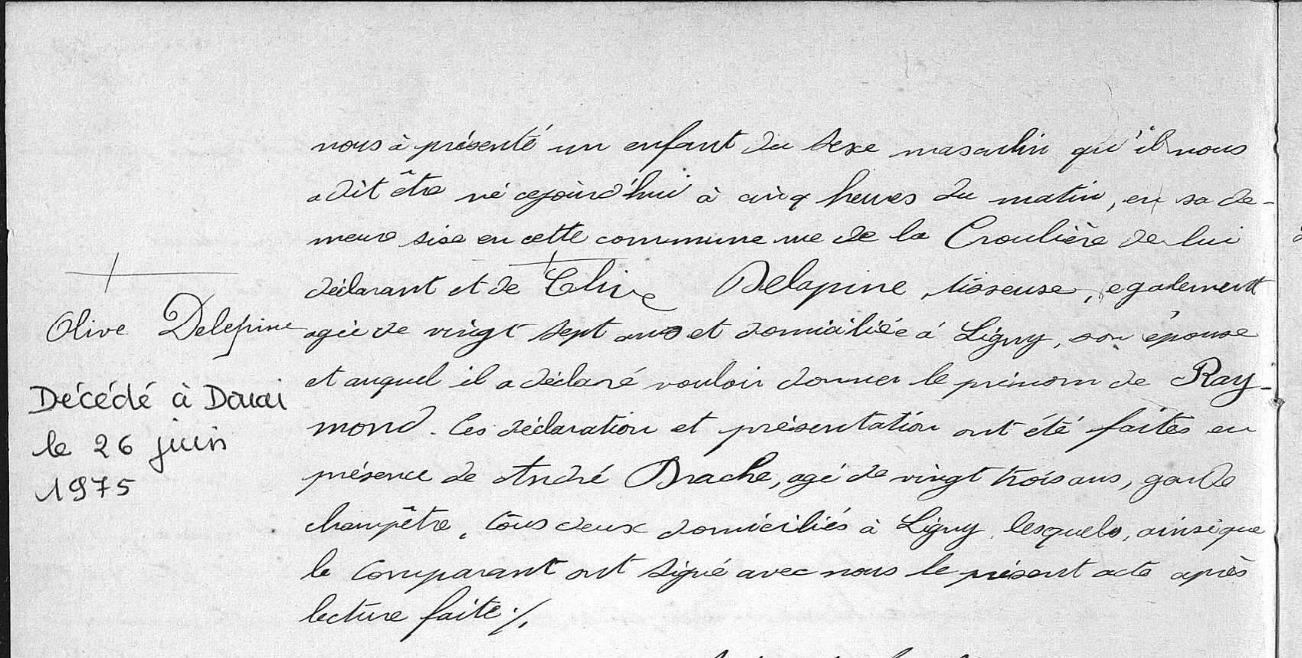 nous à présenté un enfant du sexe masculin qu'il nous
a dit être né cejourd'hui à cinq heures du matin, en sa de-
meure sise en cette commune rue de la Croulière de lui
déclarant et de Olive Delapine, tisseuse, egalement
agée de vingt sept ans et domiciliée à Ligny, son épouse
et auquel il a déclaré vouloir donner le prénom de Ray-
mond. Ces déclaration et présentation ont été faites en
présence de André Brache, agé de vingt trois ans, garde
champêtre, tous deux domiciliés à Ligny, lesquels, ainsi que
le comparant ont signé avec nous le présent acte après
lecture faite ./.
Olive Delepine
Décédé à Douai
le 26 juin
1975